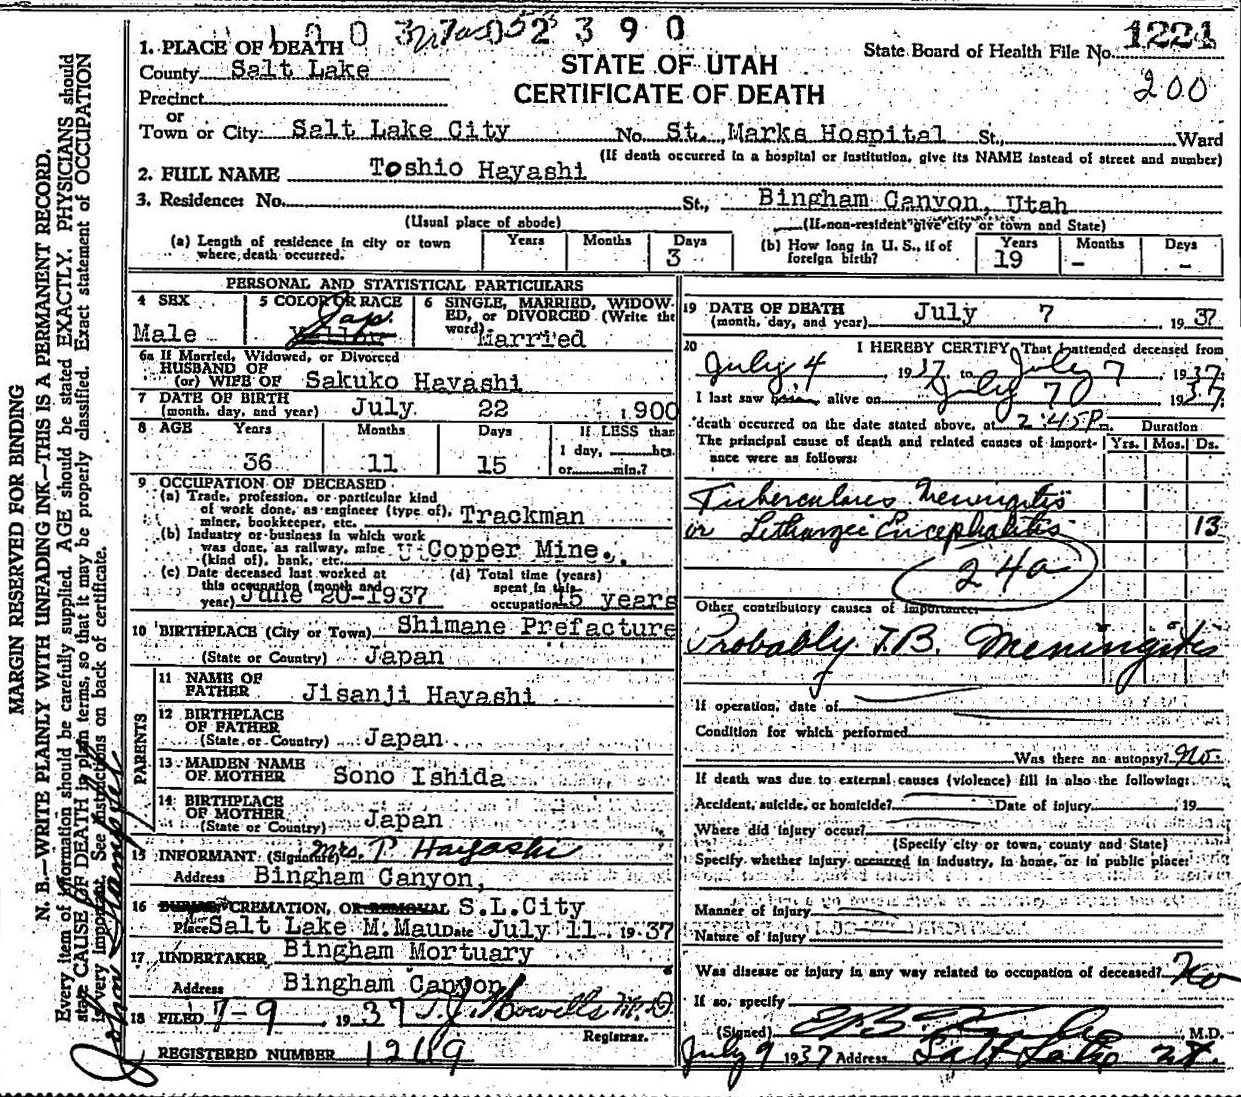 2390
1. PLACE OF DEATH
County Salt Lake
Precinct
or
Town or City: Salt Lake City No. St. Marks Hospital St., Ward
STATE OF UTAH
CERTIFICATE OF DEATH
State Board of Health File No. 1221
200
(If death occurred in a hospital or institution, give its NAME instead of street and number)
2. FULL NAME Toshio Hayashi
3. Residence: No. St., Bingham Canyon, Utah
(Usual place of abode) (If non-resident give city or town and State)
(a) Length of residence in city or town where death occurred. Years Months Days 3
(b) How long in U. S., if of foreign birth? Years 19 Months - Days -
PERSONAL AND STATISTICAL PARTICULARS
4 SEX Male
5 COLOR OR RACE Jap.
6 SINGLE, MARRIED, WIDOWED, or DIVORCED (Write the word) Married
6a If Married, Widowed, or Divorced
HUSBAND OF
(or) WIFE OF Sakuko Hayashi
7 DATE OF BIRTH
(month, day, and year) July 22 1900
8 AGE Years 36 Months 11 Days 15 If LESS than 1 day, hrs. or min.?
9 OCCUPATION OF DECEASED
(a) Trade, profession, or particular kind
of work done, as engineer (type of),
miner, bookkeeper, etc. Trackman
(b) Industry or business in which work
was done, as railway, mine
(kind of), bank, etc. Copper Mine.
(c) Date deceased last worked at
this occupation (month and
year) June 20-1937
(d) Total time (years)
spent in this
occupation 15 years
10 BIRTHPLACE (City or Town) Shimane Prefacture
(State or Country) Japan
PARENTS
11 NAME OF
FATHER Jisanji Hayashi
12 BIRTHPLACE
OF FATHER
(State or Country) Japan
13 MAIDEN NAME
OF MOTHER Sono Ishida
14 BIRTHPLACE
OF MOTHER
(State or Country) Japan
15 INFORMANT (Signature) Mrs. T Hayashi
Address Bingham Canyon,
16 BURIAL, CREMATION, OR REMOVAL S.L.City
Place Salt Lake M.Mau Date July 11. 1937
17 UNDERTAKER Bingham Mortuary
Address Bingham Canyon
18 FILED 7-9, 1937 T. J. Howells M.D.
Registrar.
REGISTERED NUMBER
19 DATE OF DEATH
(month, day, and year) July 7 1937
20 I HEREBY CERTIFY, That I attended deceased from
July 4 1937 to July 7, 1937;
I last saw alive on July 7 1937,
death occurred on the date stated above, at 2:45P m. Duration
The principal cause of death and related causes of importance were as follows: Yrs. Mos. Ds.
Tuberculous Meningitis
or Lethargic Encephalitis 13
24a
Other contributory causes of importance:
Probably T.B. Meningitis
If operation, date of
Condition for which performed
Was there an autopsy? No.
If death was due to external causes (violence) fill in also the following:
Accident, suicide, or homicide? Date of injury 19
Where did injury occur?
(Specify city or town, county and State)
Specify whether injury occurred in industry, in home, or in public place:
Manner of injury
Nature of injury
Was disease or injury in any way related to occupation of deceased? No
If so, specify
(Signed) M.D.
July 9 1937 Address Salt Lake Ut.
MARGIN RESERVED FOR BINDING
N. B.—WRITE PLAINLY WITH UNFADING INK—THIS IS A PERMANENT RECORD.
Every item of information should be carefully supplied. AGE should be stated EXACTLY. PHYSICIANS should
state CAUSE OF DEATH in plain terms, so that it may be properly classified. Exact statement of OCCUPATION
is very important. See instructions on back of certificate.